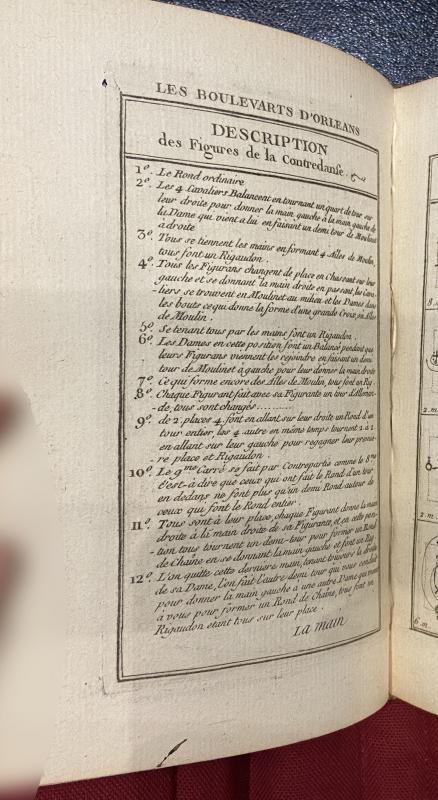 LES BOULEVARTS D'ORLEANS
DESCRIPTION
des Figures de la Contredanse.
1º. Le Rond ordinaire
2º. Les 4 Cavaliers Balancent en tournant un quart de tour sur
leur droite pour donner la main gauche à la main gauche de
la Dame qui vient à lui en faisant un demi tour de Moulinet
à droite
3º. Tous se tiennent les mains en formant 4 Ailes de Moulin,
tous font un Rigaudon.
4º. Tous les Figurans changent de place en Chassant sur leur
gauche et se donnant la main droite en passant, les Cava-
-liers se trouvent en Moulinet au milieu et les Dames dans
les bouts ce qui donne la forme d'une grande Croix, ou Ailes
de Moulin.
5º. Se tenant tous par les mains, font un Rigaudon.
6º. Les Dames en cette position font un Balancé pendant que
leurs Figurans viennent les rejoindre en faisant un demi
tour de Moulinet à gauche pour leur donner la main droite
7º. Ce qui forme encore des Ailes de Moulin, tous font un Rig.
8º. Chaque Figurant fait avec sa Figurante un tour d'Alleman-
-de, tous sont changés..........
9º. de 2. places 4. font en allant sur leur droite un Rond d'un
tour entier, les 4 autre en même temps tournent 2 à 2
en allant sur leur gauche pour regagner leur premie-
-re place et Rigaudon.
10º. Le 9me Carré se fait par Contrepartie comme le 8me
c'est-à-dire que ceux qui ont fait le Rond d'un tour
en dedans ne font plus qu'un demi Rond autour de
ceux qui font le Rond entier.
11º. Tous sont à leur place chaque Figurant donne la main
droite à la main droite de sa Figurante, et en cette posi-
-tion tous tournent un demi-tour pour former un Rond
de Chaîne en se donnant la main gauche et font un Rig.
12º. L'on quitte cette derniere main, tenant toujours la droite
de sa Dame, l'on fait l'autre demi tour qui vous conduit
pour donner la main gauche a une autre Dame qui vient
à vous pour former un Rond de Chaîne, tous font un
Rigaudon etant tous sur leur place.
La main